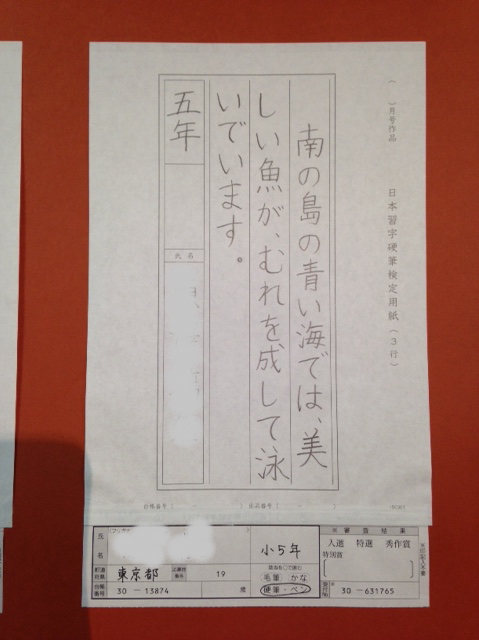 （　）月号作品
日本習字硬筆検定用紙（３行）
南の島の青い海では、美
しい魚が、むれを成して泳
いでいます。
五年
氏名
氏名
小5年
都道府県
東京都
19
毛筆　かな
硬筆・ペン
30 － 13874
審査結果
入選　特選　秀作賞
特別賞
30 － 631765